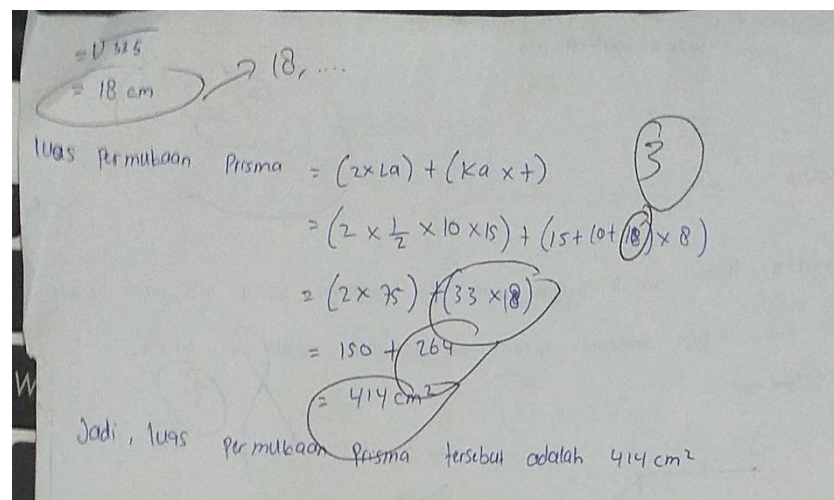 = √335
= 18 cm → 18, ....
luas permukaan Prisma = (2×La) + (Ka × t)
3
= (2 × 1/2 × 10 × 15) + (15 + 10 + 18) × 8)
= (2 × 75) + (33 × 18)
= 150 + 264
= 414 cm²
Jadi, luas permukaan Prisma tersebut adalah 414 cm²